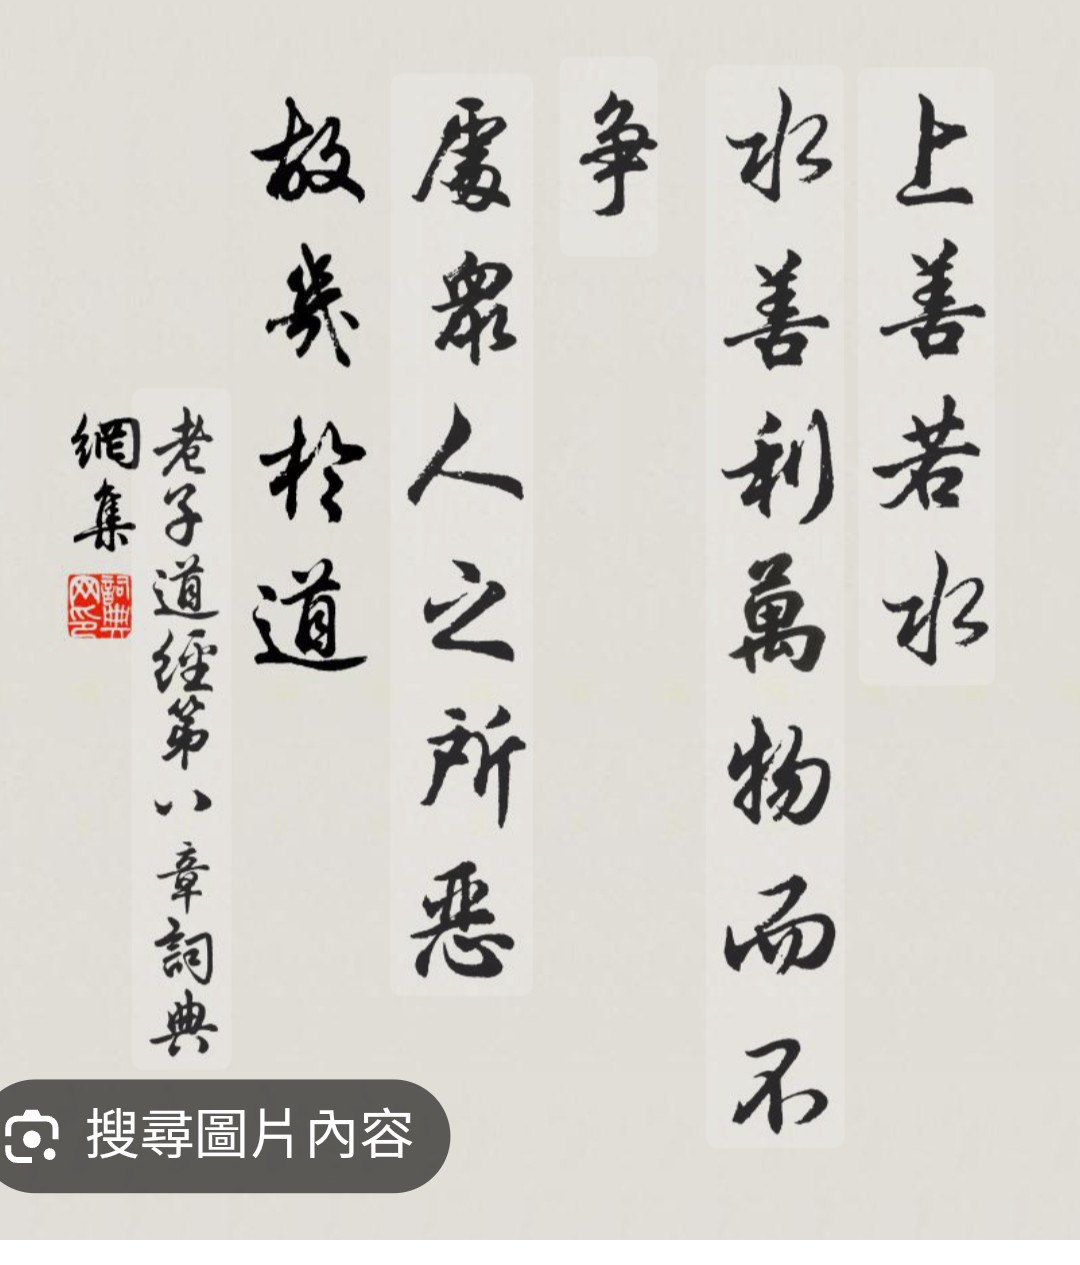 上善若水
水善利萬物而不
爭
處眾人之所惡
故幾於道
老子道經第八章詞典
網集
詞典
网印
搜尋圖片內容